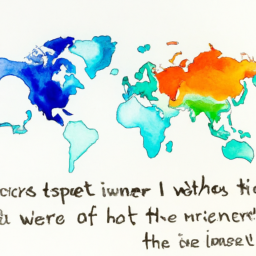 ocrs tspet iwner I vethas tie
u were of hot the mrienere
the ise ionase